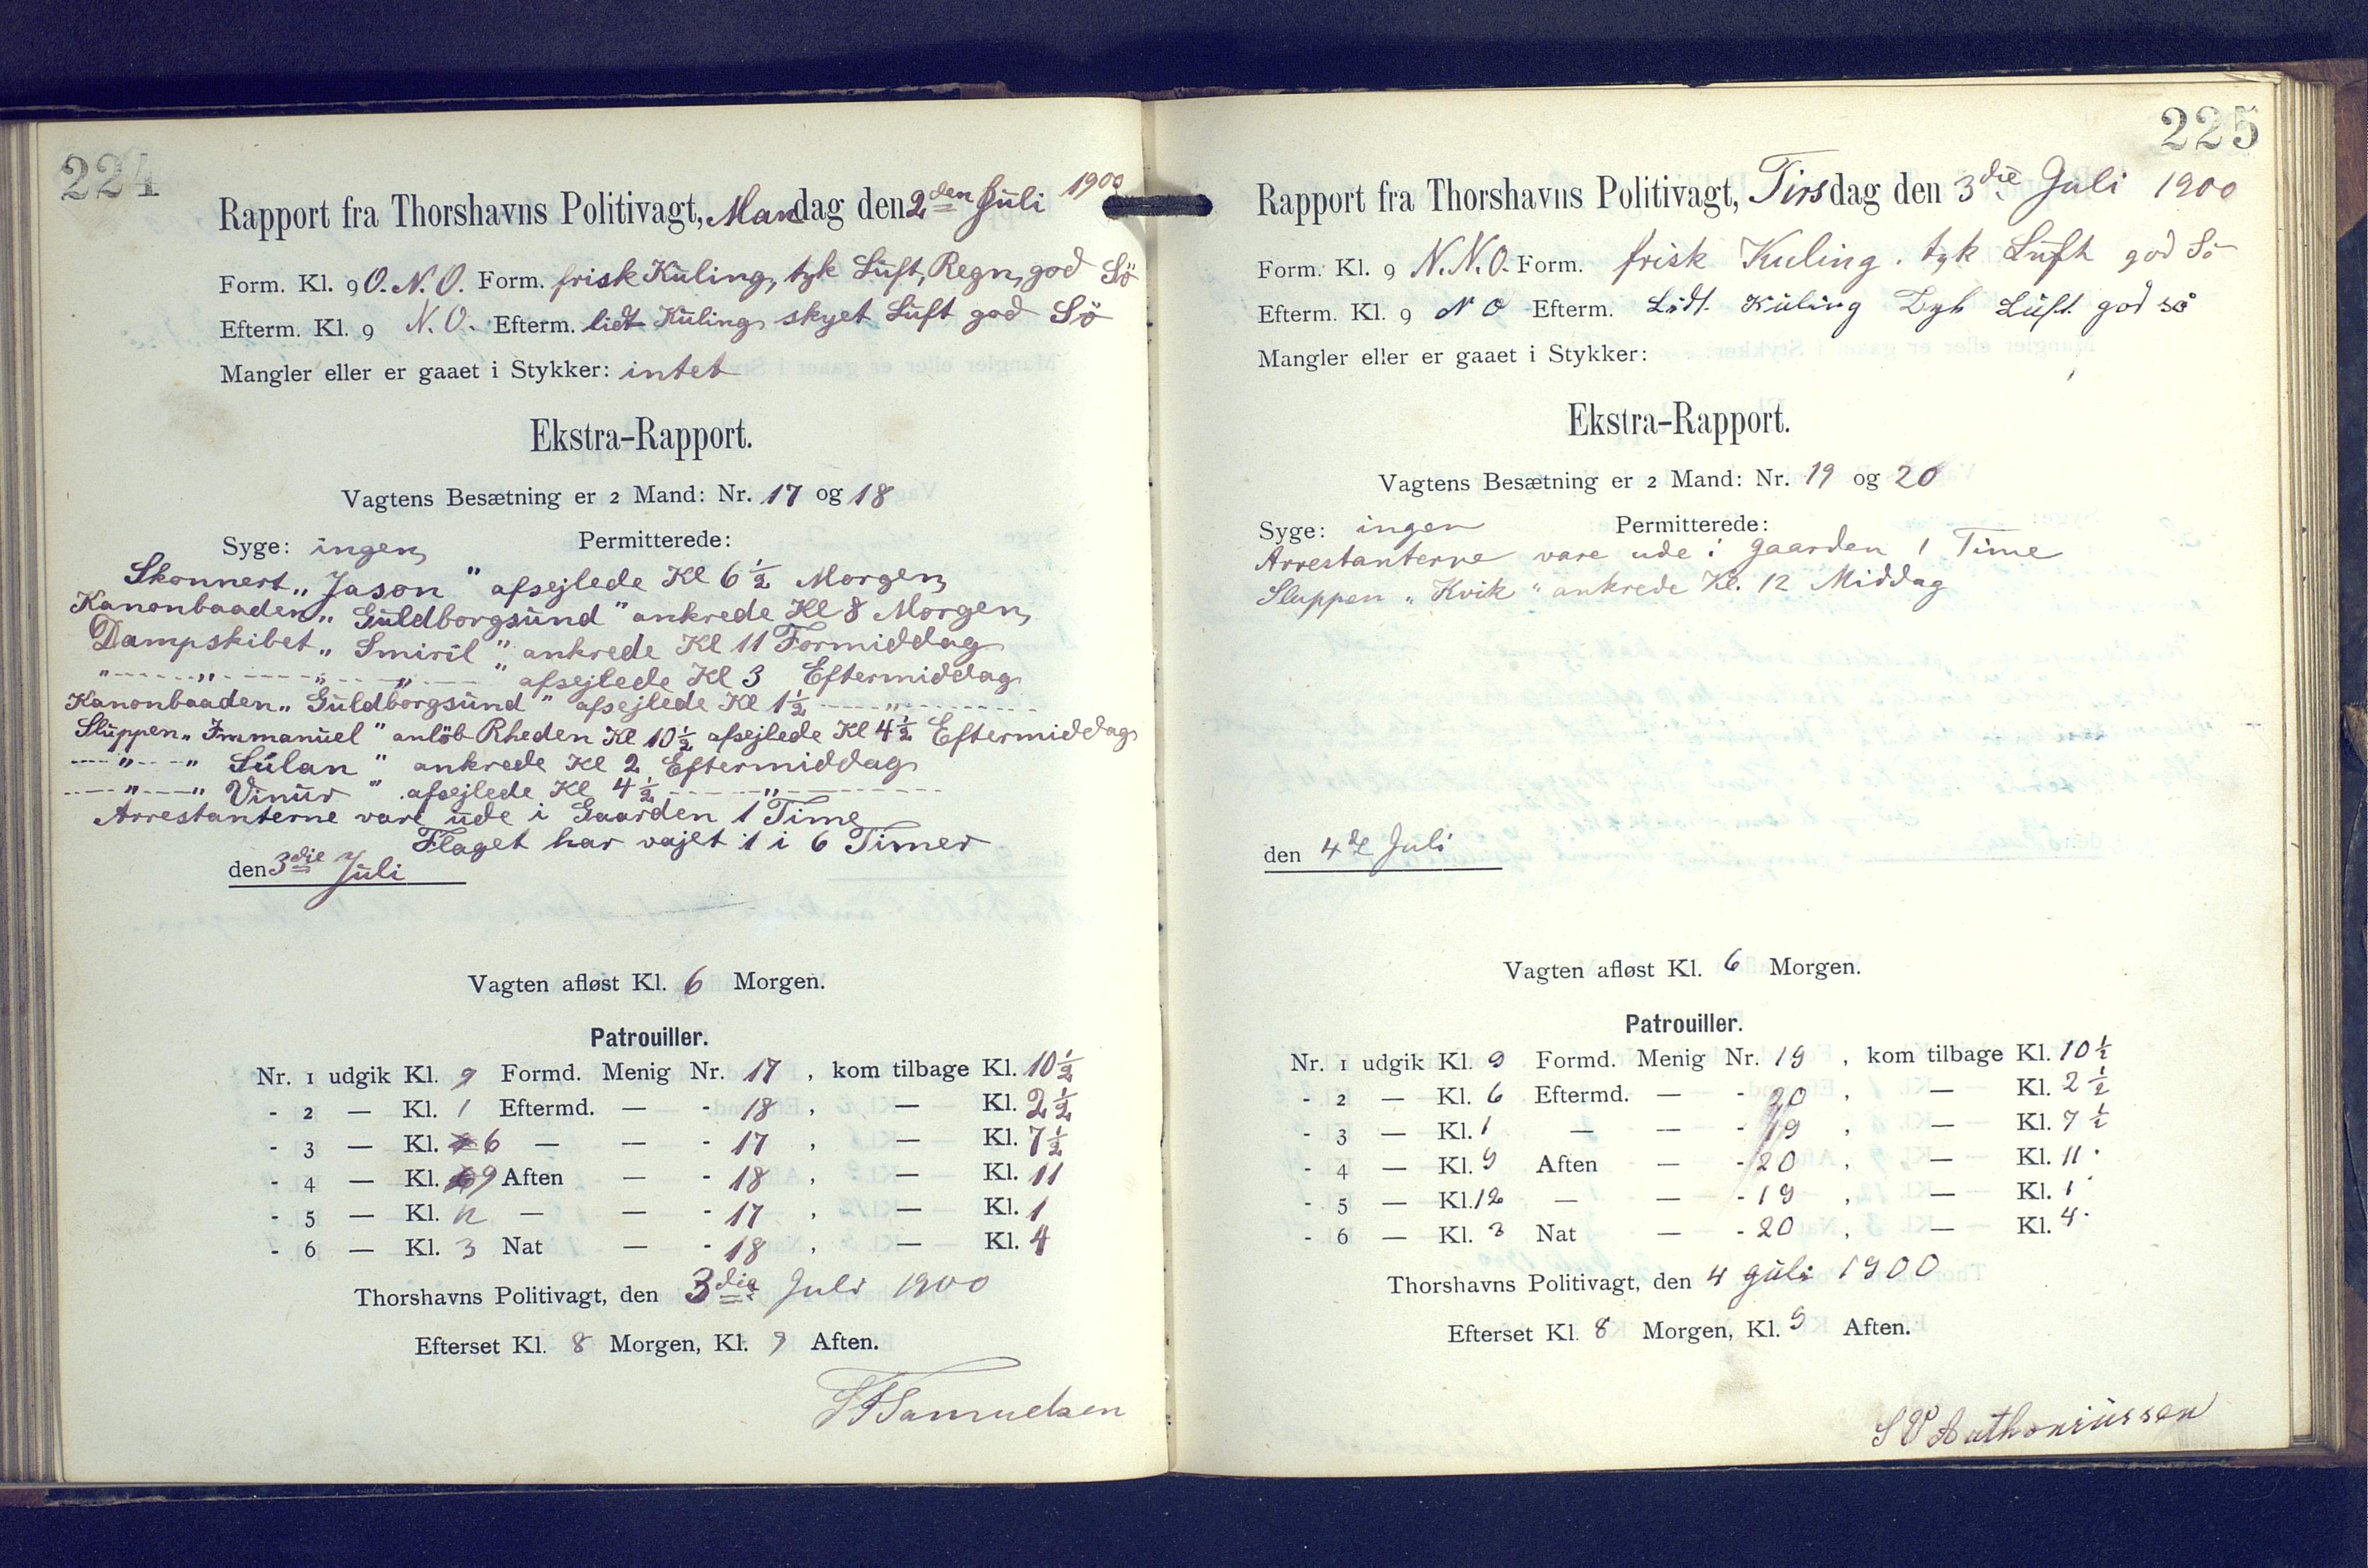 224
Rapport fra Thorshavns Politivagt, Mandag den 2den Juli 1900
Form. Kl. 9 O.N.O. Form. frisk Kuling, tyk Luft, Regn, god Sö
Efterm. Kl. 9 N.O. Efterm. lidt Kuling skyet Luft god Sö
Mangler eller er gaaet i Stykker: intet
Ekstra-Rapport.
Vagtens Besætning er 2 Mand: Nr. 17 og 18
Syge: ingen Permitterede:
Skonnert „Jason" afsejlede Kl 6½ Morgen
Kanonbaaden „Guldborgsund" ankrede Kl 8 Morgen
Dampskibet „Smiril" ankrede Kl 11 Formiddag
" " " " afsejlede Kl 3 Eftermiddag
Kanonbaaden „Guldborgsund" afsejlede Kl 1½ "
Sluppen „Immanuel" anlöb Rheden Kl 10½ afsejlede Kl 4½ Eftermiddag
" " Súlan " ankrede Kl 2 Eftermiddag
" " Vinur " afsejlede Kl 4½ "
Arrestanterne vare ude i Gaarden 1 Time
Flaget har vajet 1 i 6 Timer
den 3die Juli
Vagten afløst Kl. 6 Morgen.
Patrouiller.
Nr. 1 udgik Kl. 9 Formd. Menig Nr. 17, kom tilbage Kl. 10½
- 2 — Kl. 1 Eftermd. — - 18, — Kl. 2½
- 3 — Kl. 6 — — - 17, — Kl. 7½
- 4 — Kl. 9 Aften — - 18, — Kl. 11
- 5 — Kl. 12 — — - 17, — Kl. 1
- 6 — Kl. 3 Nat — - 18, — Kl. 4
Thorshavns Politivagt, den 3die Juli 1900
Efterset Kl. 8 Morgen, Kl. 9 Aften.
Samuelsen
225
Rapport fra Thorshavns Politivagt, Tirsdag den 3die Juli 1900
Form. Kl. 9 N.N.O. Form. frisk Kuling. tyk Luft god Sö
Efterm. Kl. 9 N O Efterm. Lidt Kuling Tyk Luft god sö
Mangler eller er gaaet i Stykker:
Ekstra-Rapport.
Vagtens Besætning er 2 Mand: Nr. 19 og 20
Syge: ingen Permitterede:
Arrestanterne vare ude i Gaarden 1 Time
Sluppen „Kvik" ankrede Kl. 12 Middag
den 4de Juli
Vagten afløst Kl. 6 Morgen.
Patrouiller.
Nr. 1 udgik Kl. 9 Formd. Menig Nr. 19, kom tilbage Kl. 10½
- 2 — Kl. 6 Eftermd. — - 20, — Kl. 2½
- 3 — Kl. 1 — — - 19, — Kl. 7½
- 4 — Kl. 9 Aften — - 20, — Kl. 11
- 5 — Kl. 12 — — - 19, — Kl. 1
- 6 — Kl. 3 Nat — - 20, — Kl. 4
Thorshavns Politivagt, den 4 Juli 1900
Efterset Kl. 8 Morgen, Kl. 9 Aften.
S P Anthoniussen